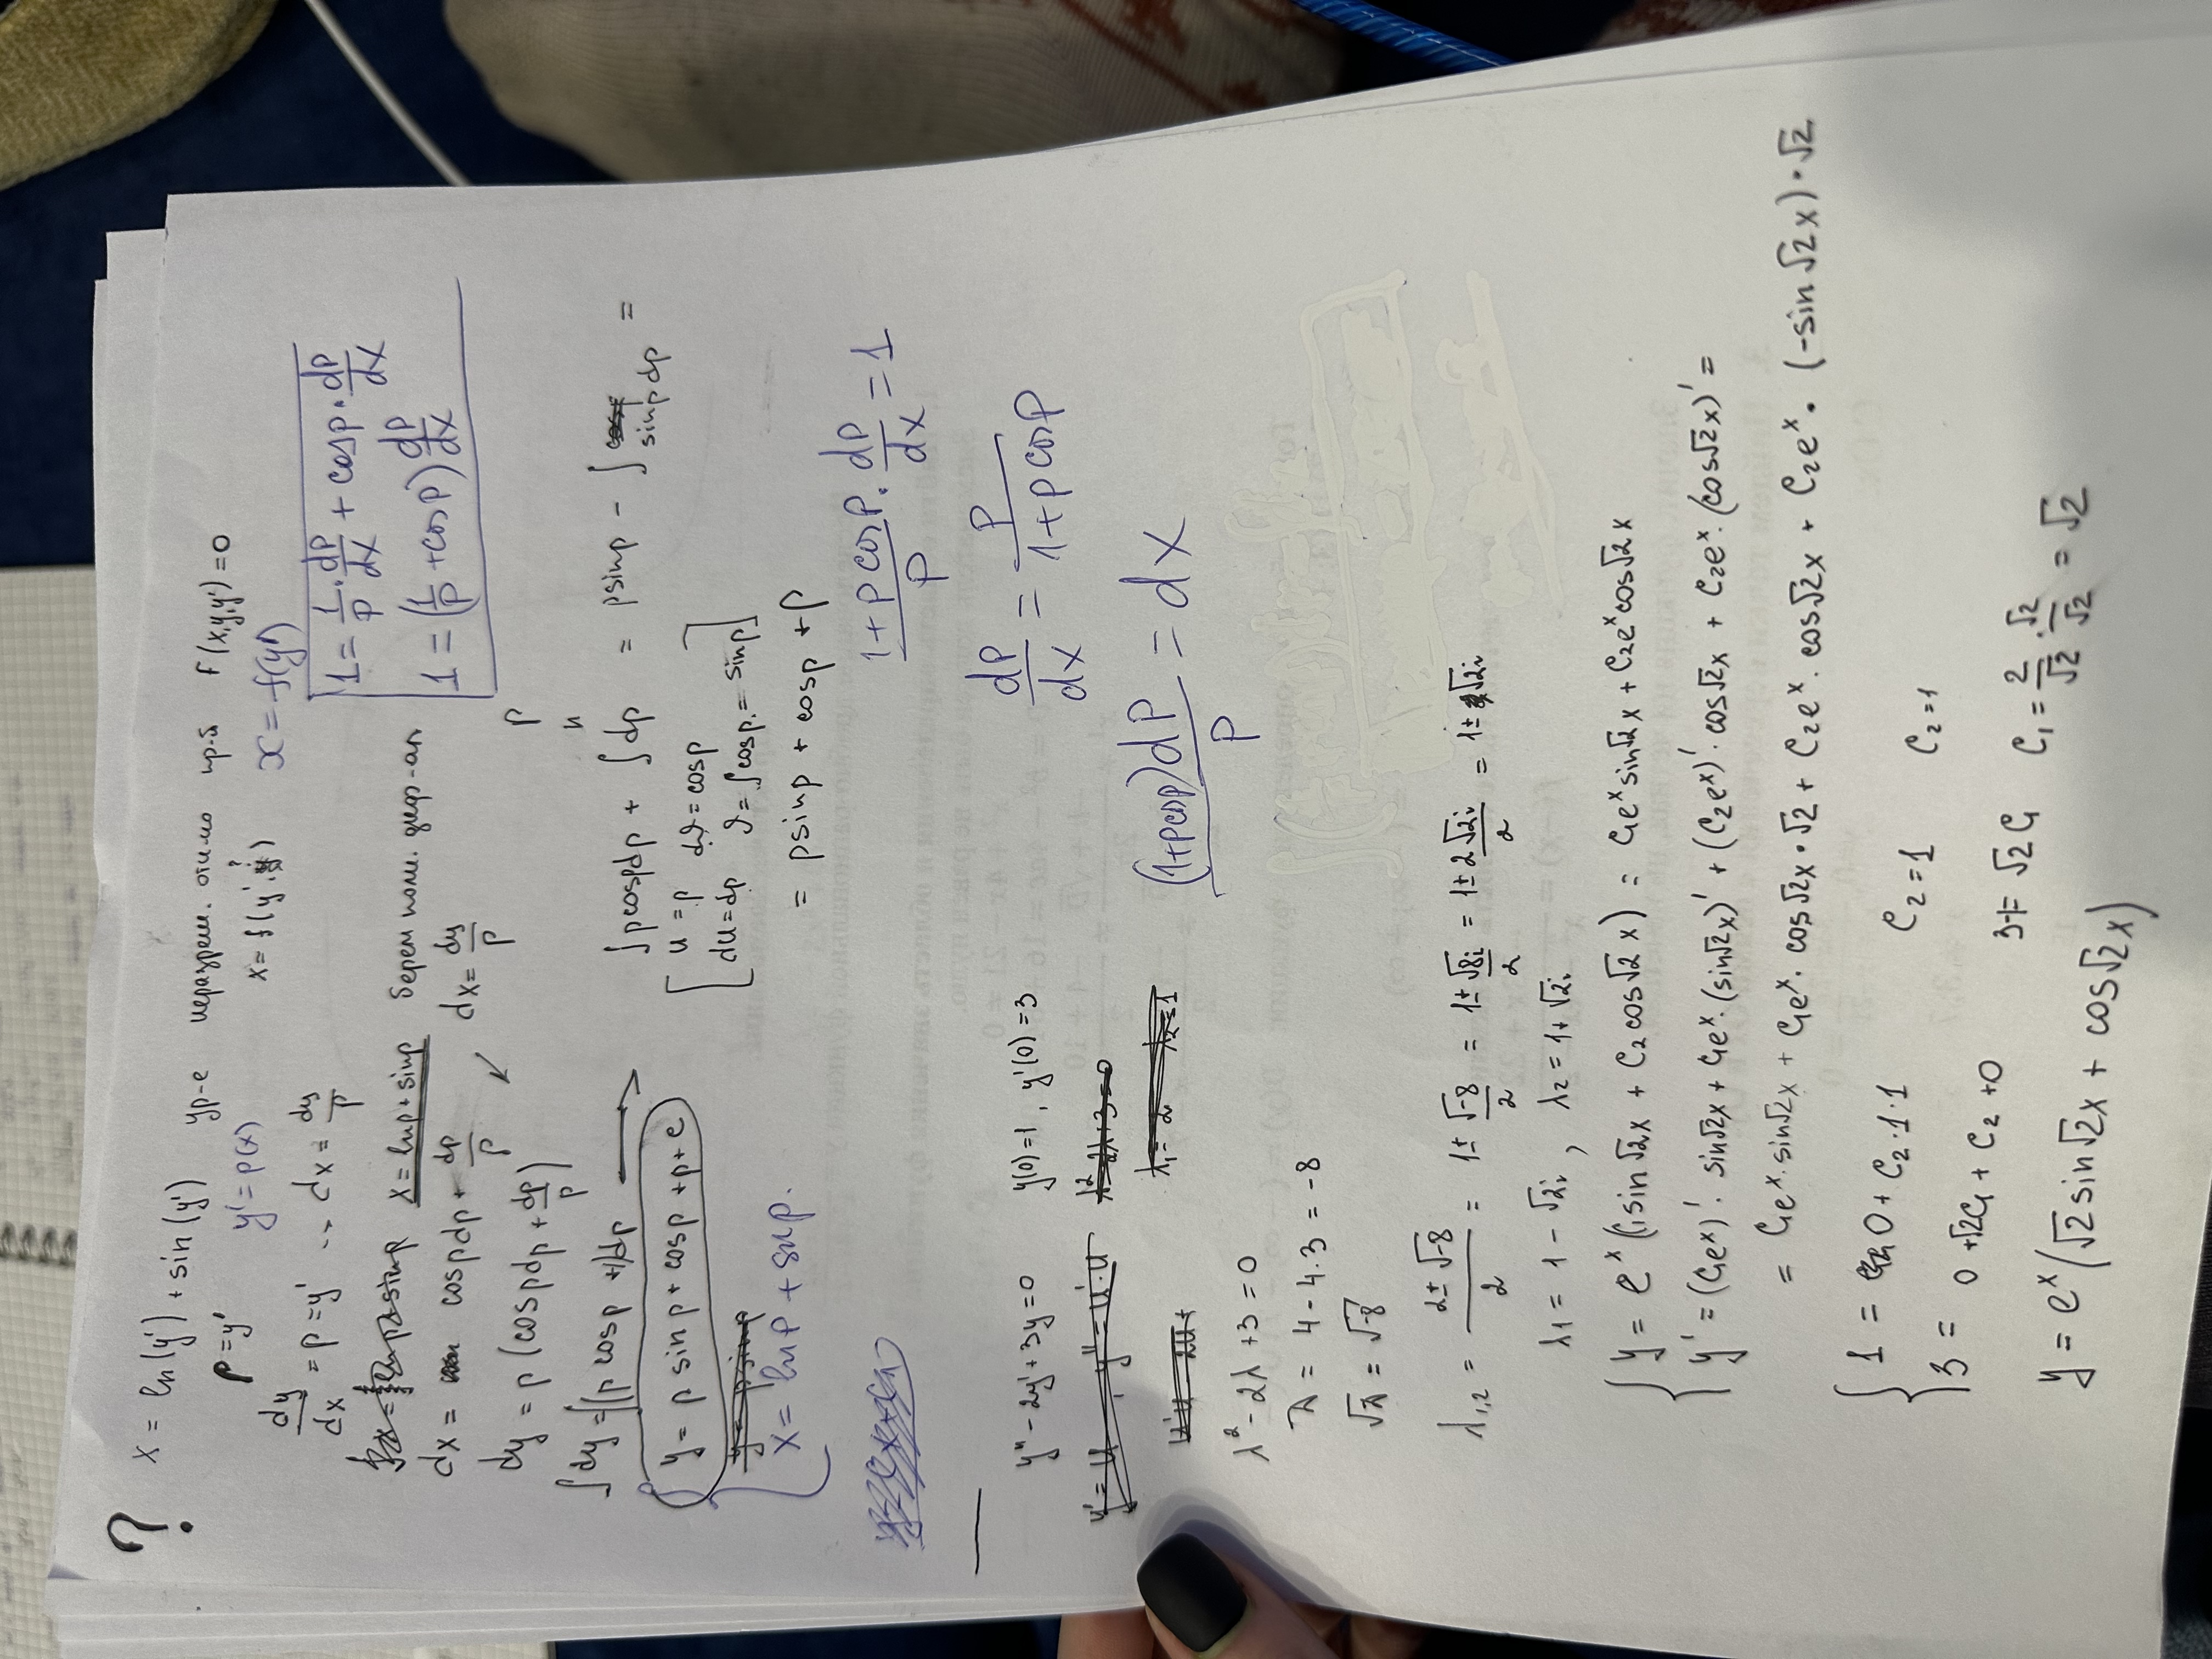 ?
x = ln(y') + sin(y')
ур-е неразреш. отн-но пр-й F(x,y,y')=0
p=y'
y'=p(x)
x= f(y', y)
?
x=f(y')
dy/dx = p = y' ... dx = dy/p
1 = 1/p · dp/dx + cosp · dp/dx
1 = (1/p + cosp) dp/dx
x = lnp + sinp берем полн. диф-ал
dx = cospdp + dp/p
dx = dy/p
dy = p (cospdp + dp/p)
p
и
∫dy = ∫(p cosp +1)dp → ∫pcospdp + ∫dp = psinp - ∫ sinpdp =
[u = p dϑ = cosp
du = dp ϑ = ∫cosp. = sinp]
y = p sinp + cosp + p + c
x = lnp + sinp.
= psinp + cosp + p
(1+pcosp)/p · dp/dx = 1
dp/dx = p/(1+pcosp)
(1+pcosp)dp/p = dx
y" - 2y' + 3y = 0 y(0)=1, y'(0)=3
y'= u , y" = u'·u
λ² - 2λ + 3 = 0
λ₁ = 2 λ₂ = 1
u'u - 2u +
λ² - 2λ + 3 = 0
Д = 4 - 4·3 = -8
√Д = √-8
λ₁,₂ = (2 ± √-8)/2 = 1 ± √-8/2 = 1 ± √8i/2 = 1 ± 2√2i/2 = 1 ± √2i
λ₁ = 1 - √2i , λ₂ = 1 + √2i
y = eˣ(C₁sin√2x + C₂cos√2x) = C₁eˣsin√2x + C₂eˣcos√2x
y' = (C₁eˣ)' · sin√2x + C₁eˣ·(sin√2x)' + (C₂eˣ)' · cos√2x + C₂eˣ·(cos√2x)' =
= C₁eˣ·sin√2x + C₁eˣ·cos√2x·√2 + C₂eˣ·cos√2x + C₂eˣ·(-sin√2x)·√2
1 = 0 + C₂·1·1 C₂=1 C₂=1
3 = 0 + √2C₁ + C₂ + 0 3-1= √2C₁ C₁ = 2/√2 · √2/√2 = √2
y = eˣ(√2sin√2x + cos√2x)